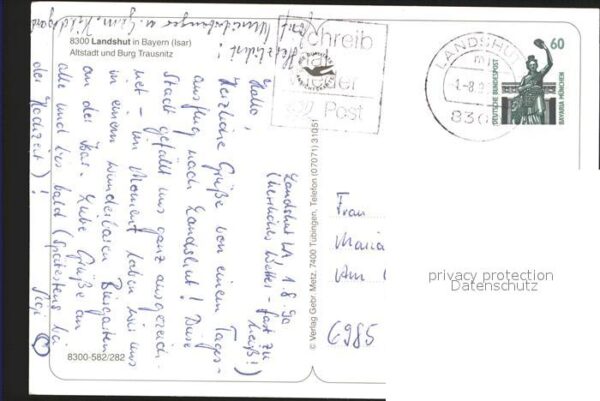 8300 Landshut in Bayern (Isar)
Altstadt und Burg Trausnitz
Schreib
mal
wieder
Post
LANDSHUT
mm
-1.-8.9
830
60
DEUTSCHE BUNDESPOST
BAVARIA MÜNCHEN
Landshut LA, 1.8.90
(herrliches Wetter - fast zu
heiß!)
Hallo,
Herzliche Grüße von einem Tages-
ausflug nach Landshut! Diese
Stadt gefällt uns ganz ausgezeich-
net - im Moment laben wir uns
in einem wunderbaren Biergarten
an der Isar. Liebe Grüße an
alle und bis bald (spätestens bei
der Hochzeit)!
Herzlichst!
© Verlag Gebr. Metz, 7400 Tübingen, Telefon (07071) 31051
Frau
Maria
Am
6985
8300-582/282
privacy protection
Datenschutz